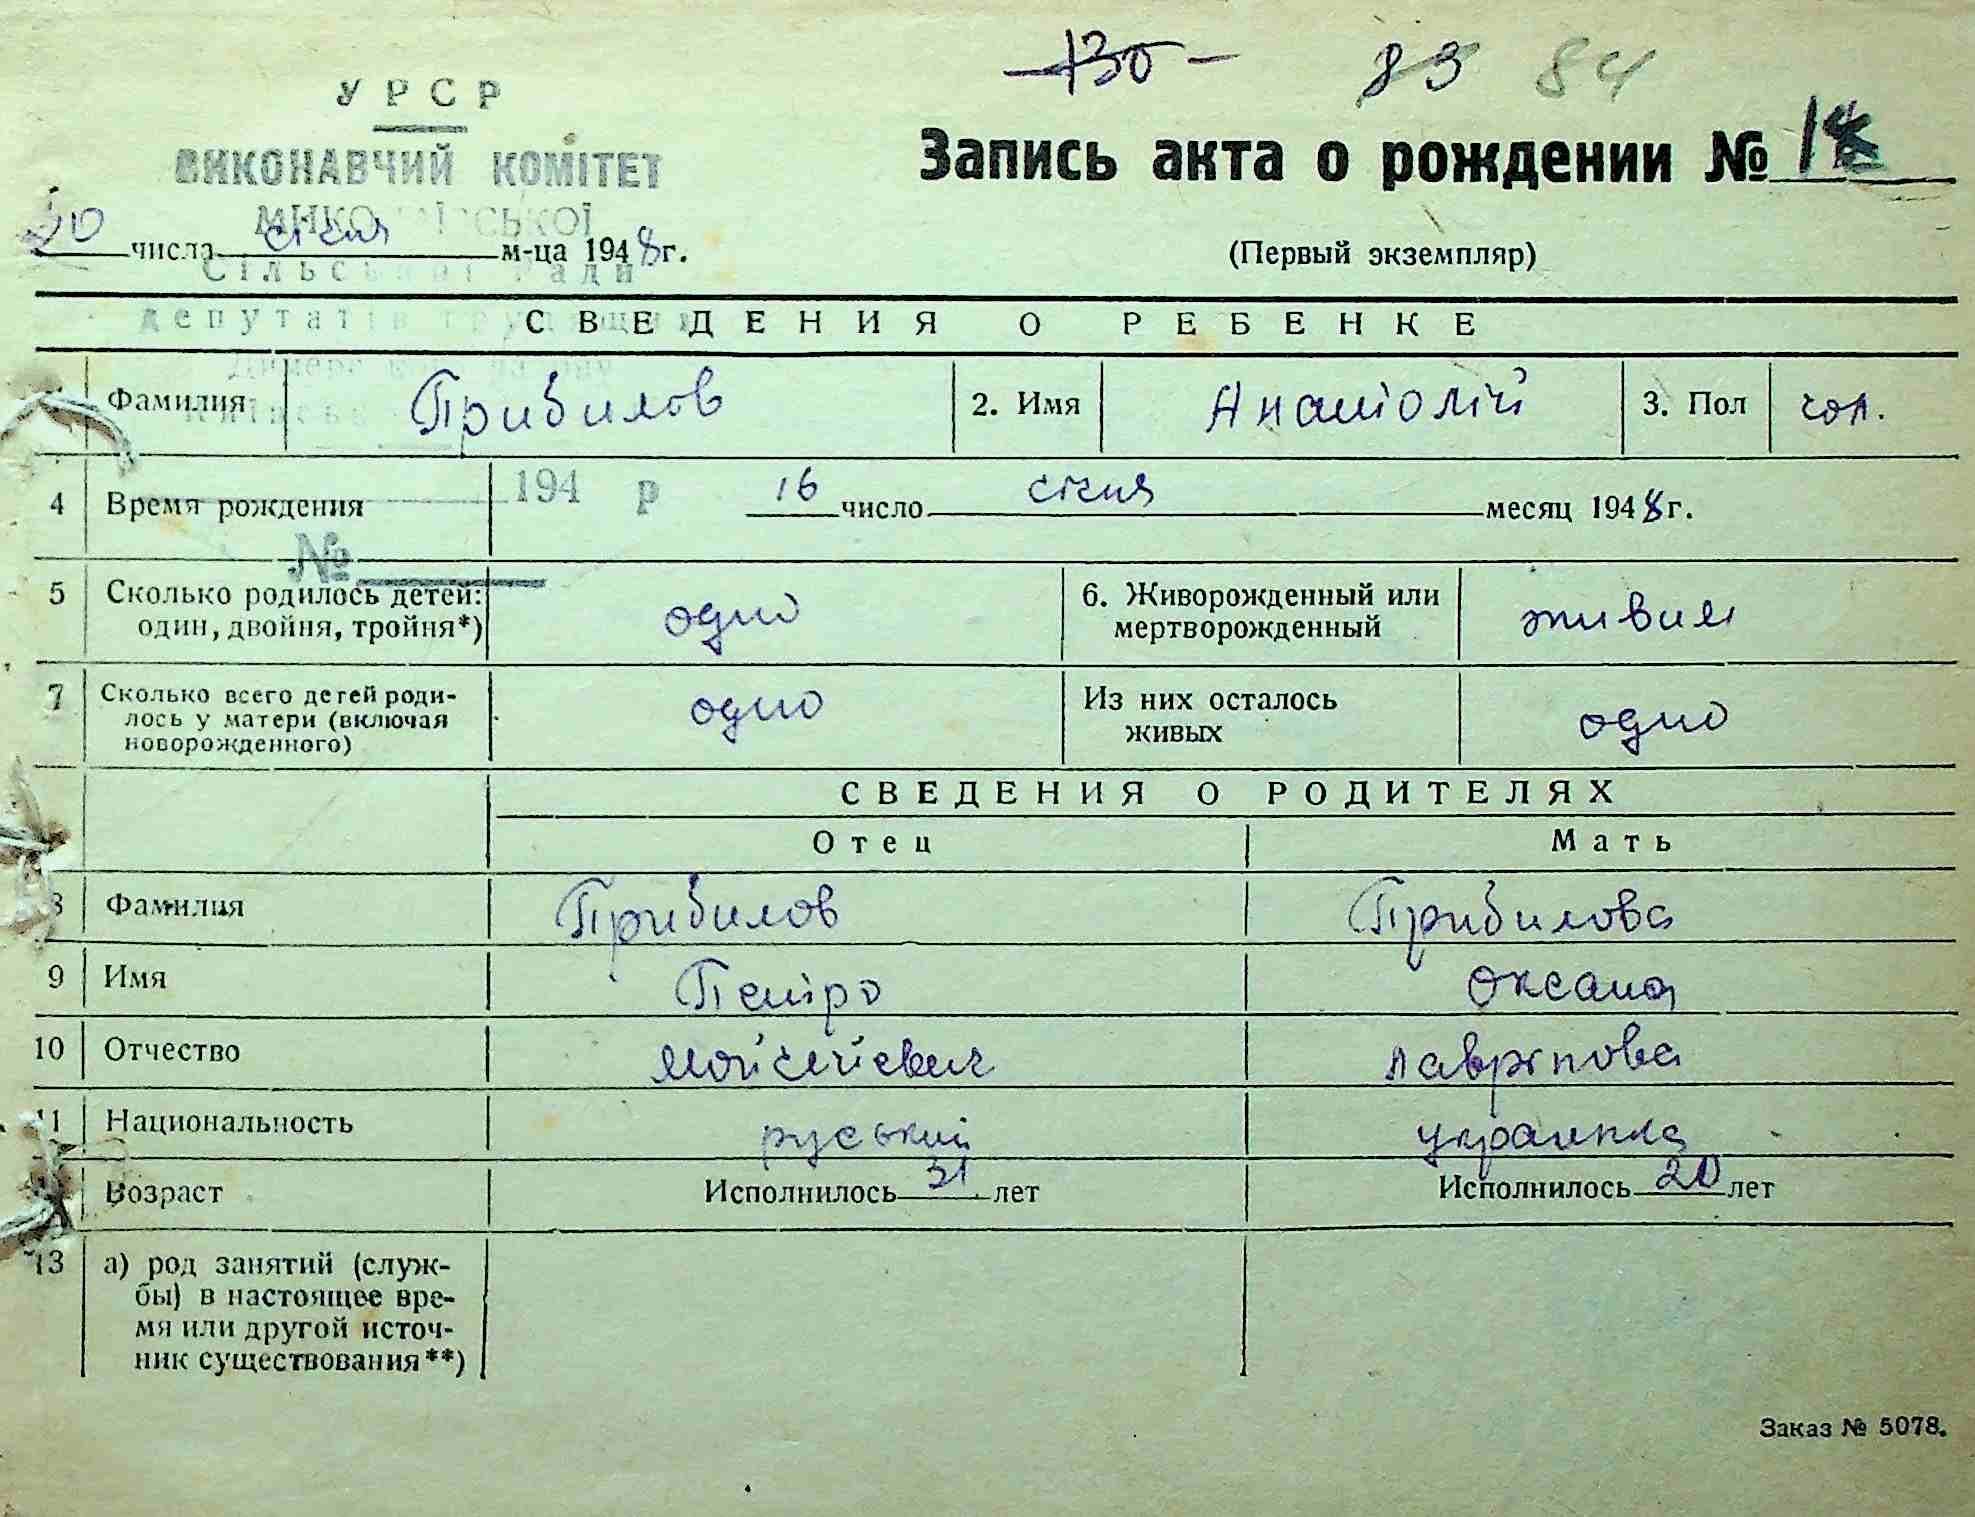 130 83 84
УРСР
ВИКОНАВЧИЙ КОМІТЕТ
Запись акта о рождении №
20 числа січня м-ца 1948 г.
(Первый экземпляр)
Сільської Ради
депутатів трудящих
СВЕДЕНИЯ О РЕБЕНКЕ
Фамилия Прибилов 2. Имя Анатолій 3. Пол чол.
194 р
4 Время рождения 16 число січня месяц 1948 г.
№
5 Сколько родилось детей: один, двойня, тройня*) одно 6. Живорожденный или мертворожденный живим
7 Сколько всего детей родилось у матери (включая новорожденного) одно Из них осталось живых одно
СВЕДЕНИЯ О РОДИТЕЛЯХ
Отец Мать
8 Фамилия Прибилов Прибилова
9 Имя Петро Оксана
10 Отчество Мойсейевич
11 Национальность руський украинка
Возраст Исполнилось 31 лет Исполнилось 20 лет
13 а) род занятий (служ-
бы) в настоящее вре-
мя или другой источ-
ник существования**)
Заказ № 5078.